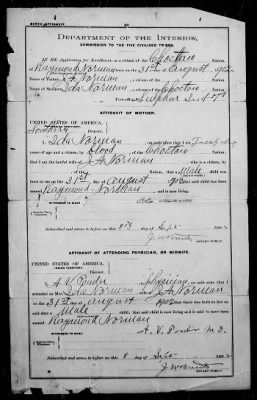 BIRTH AFFIDAVIT.
DEPARTMENT OF THE INTERIOR,
COMMISSION TO THE FIVE CIVILIZED TRIBES.
IN RE Application for Enrollment, as a citizen of the Choctaw Nation,
of Raymond Norman born on the 31st day of August, 1902
Name of Father: J. A. Norman a citizen of the Nation.
Name of Mother: Ida Norman a citizen of the Choctaw Nation.
Post-office Sulphur Ind. T.
AFFIDAVIT OF MOTHER.
UNITED STATES OF AMERICA,
INDIAN TERRITORY,
Southern District.
I, Ida Norman, on oath state that I am Twenty
years of age and a citizen, by blood, of the Choctaw Nation;
that I am the lawful wife of J. A. Norman, who is a citizen, by
of the Nation; that a male child was
born to me on the 31st day of August, 1902; that said child has been
named Raymond Norman, and is now living.
Ida Norman
Subscribed and sworn to before me this 8th day of Sept, 1902
NOTARY PUBLIC.
AFFIDAVIT OF ATTENDING PHYSICIAN, OR MIDWIFE.
UNITED STATES OF AMERICA,
INDIAN TERRITORY,
District.
I, A. V. Ponder, a physician, on oath state that I
attended on Mrs. Ida Norman, wife of J. A. Norman
on the 31st day of August, 1902; that there was born to her on said
date a male child; that said child is now living and is said to have been
named Raymond Norman
A. V. Ponder M.D.
Subscribed and sworn to before me this 8 day of Sept, 1902
NOTARY PUBLIC.